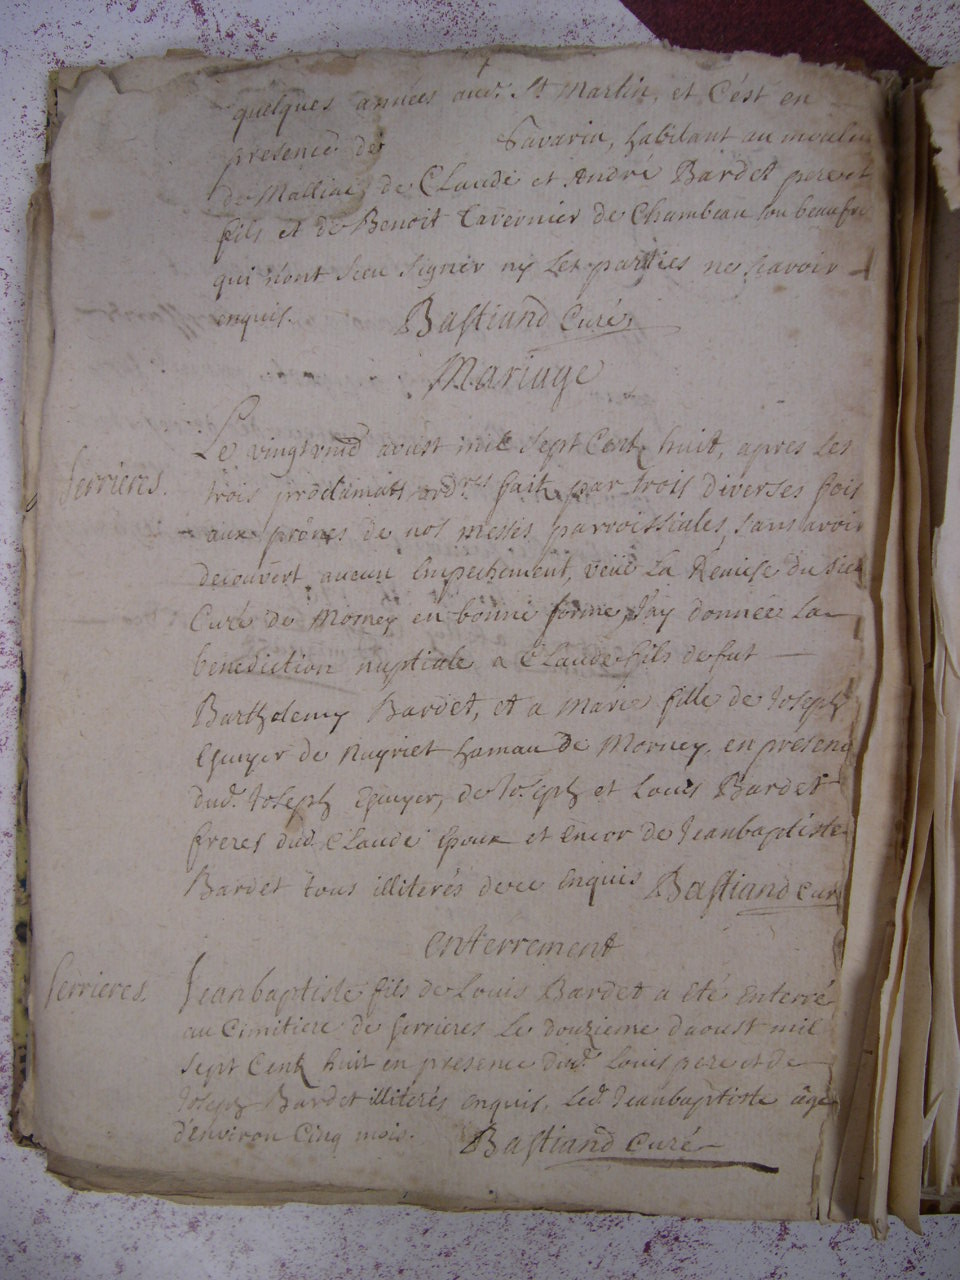 quelques années aud. St Martin, et C'est en
presence de Savarin, habitant au moulin
de Malliac, de CLaude et André Bardet pere et
fils et de Benoit Tavernier de Chambeau son beaufre
qui n'ont sceu signer ny Les parties ne sçavoir
enquis. Bastiand Curé
Mariage
Serrieres.
Le vingt aoust mil sept Cent huit, apres les
trois proclamats ordres fait par trois diverses fois
aux prônes de nos messes parroissiales, sans avoir
decouvert aucun Empechement, veüe La Remise du sieur
Curé de Morney en bonne forme J'ay donnée La
benediction nuptiale a CLaude fils de fut
Barthelemy Bardet, et a Marie fille de Joseph
Esuyer de Nuyriet hamau de Morney, en presence
dud. Joseph Esuyer, de Joseph et Louis Bardet
freres dud. CLaude Epoux et Encor de Jeanbaptiste
Bardet tous illiterés de ce Enquis Bastiand Curé
Enterrement
Serrieres.
Jeanbaptiste fils de Louis Bardet a eté Enterré
au Cimitiere de Serrieres Le douzieme daoust mil
sept Cent huit en presence dud. Louis pere et de
Joseph Bardet illiterés enquis. Led. Jeanbaptiste âgé
d'environ Cinq mois. Bastiand Curé